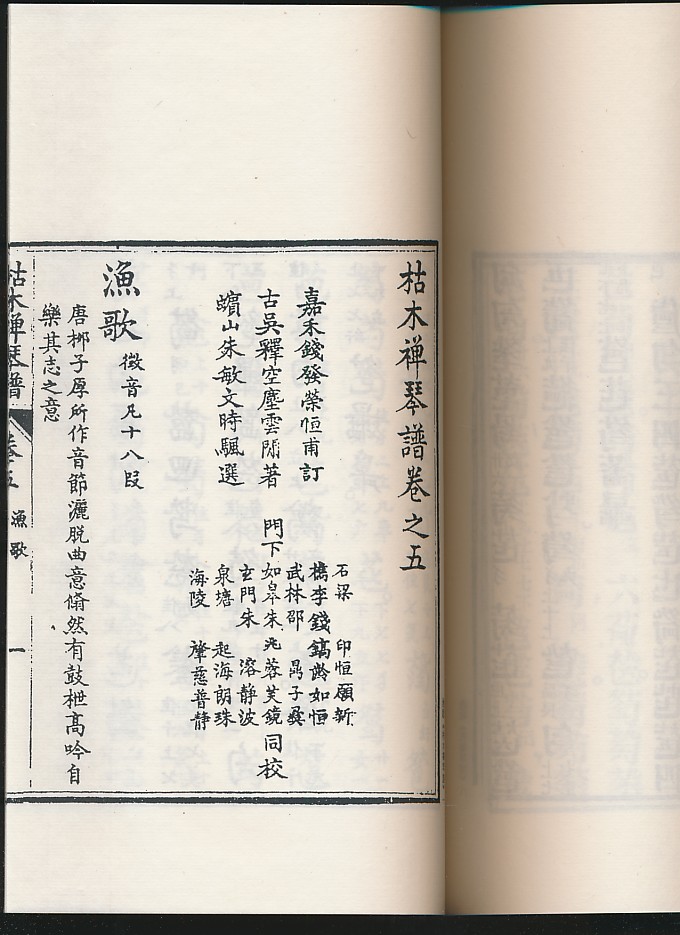 枯木禅琴譜卷之五
嘉禾錢發榮恒甫訂
古吳釋空塵雲閒著
蠙山朱敏文時颿選
門下
石梁 印恒願新
檇李錢鎬齡如恒
武林邵 子彝
如皋朱兆蓉芙鏡
玄門朱 溶静波
泉塘 起海朗珠
海陵 肇慈普静
同校
漁歌
徵音凡十八段
唐柳子厚所作音節灑脱曲意翛然有鼓枻高吟自
樂其志之意
枯木禅琴譜 卷五 漁歌 一